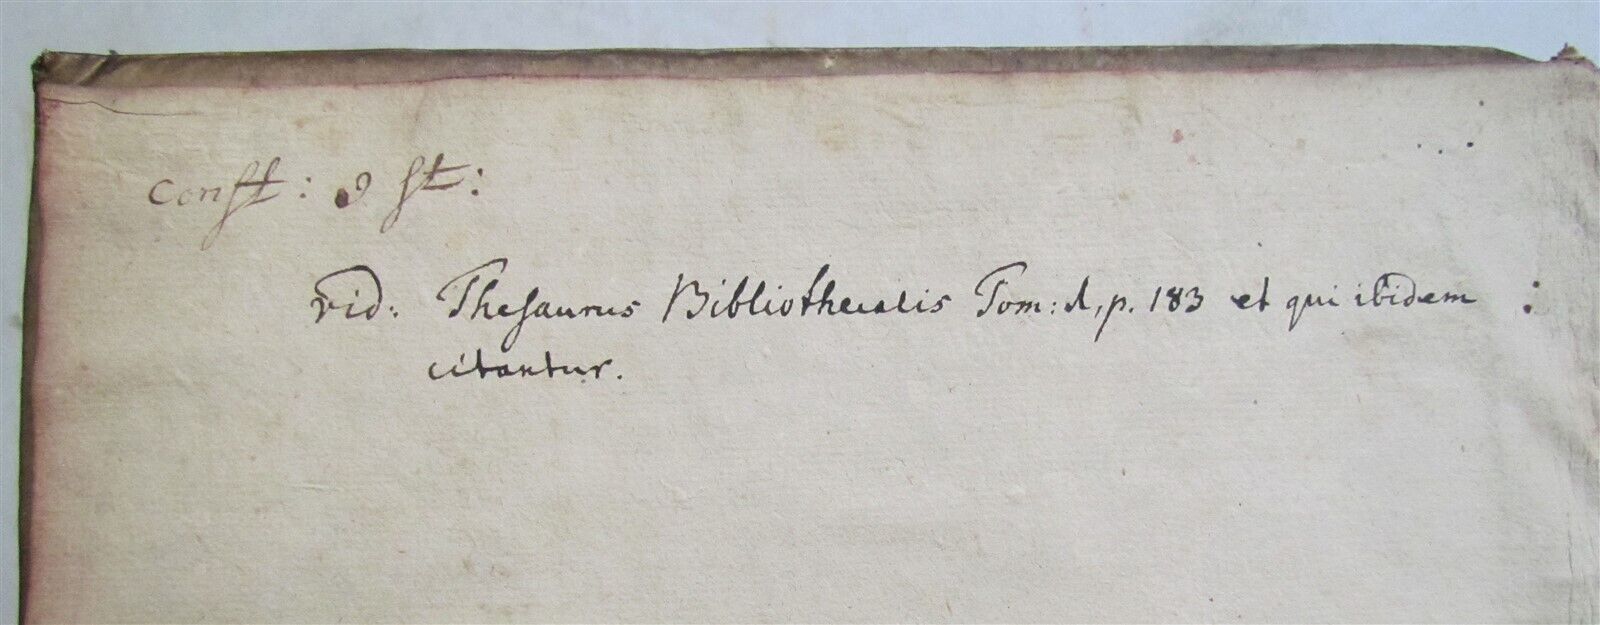 Const: 9 st:
vid: Thesaurus Bibliothecalis Tom: 1, p. 183 et qui ibidem
citantur.